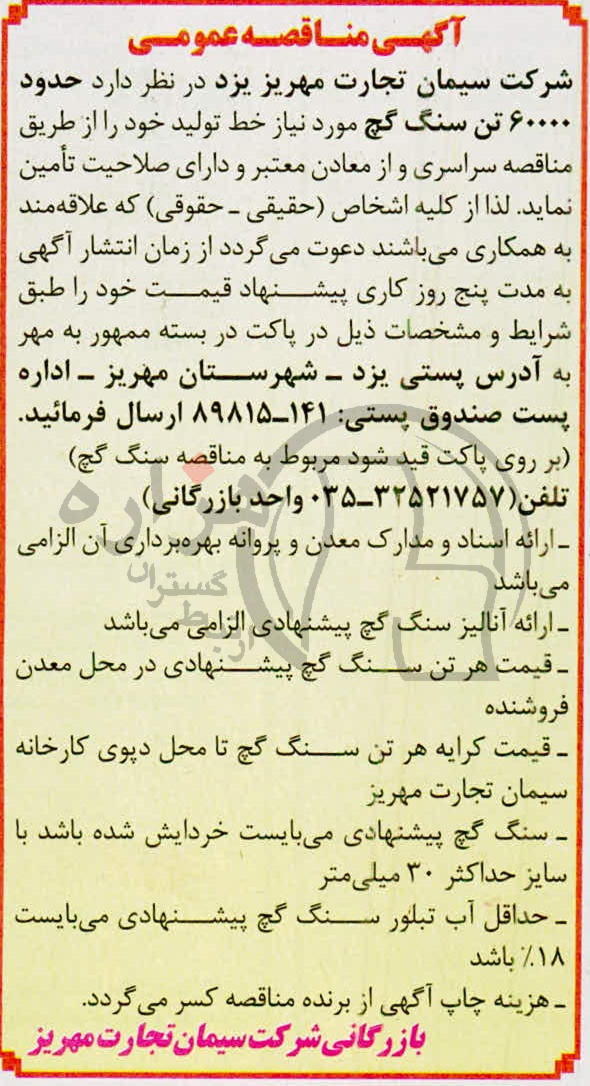 آگهی مناقصه عمومی
شرکت سیمان تجارت مهریز یزد در نظر دارد حدود
۶۰۰۰۰ تن سنگ گچ مورد نیاز خط تولید خود را از طریق
مناقصه سراسری و از معادن معتبر و دارای صلاحیت تأمین
نماید. لذا از کلیه اشخاص (حقیقی ـ حقوقی) که علاقه‌مند
به همکاری می‌باشند دعوت می‌گردد از زمان انتشار آگهی
به مدت پنج روز کاری پیشنهاد قیمت خود را طبق
شرایط و مشخصات ذیل در پاکت در بسته ممهور به مهر
به آدرس پستی یزد ـ شهرستان مهریز ـ اداره
پست صندوق پستی: ۱۴۱ـ۸۹۸۱۵ ارسال فرمائید.
(بر روی پاکت قید شود مربوط به مناقصه سنگ گچ)
تلفن(۳۲۵۲۱۷۵۷ـ۰۳۵ واحد بازرگانی)
ـ ارائه اسناد و مدارک معدن و پروانه بهره‌برداری آن الزامی
می‌باشد
ـ ارائه آنالیز سنگ گچ پیشنهادی الزامی می‌باشد
ـ قیمت هر تن سنگ گچ پیشنهادی در محل معدن
فروشنده
ـ قیمت کرایه هر تن سنگ گچ تا محل دپوی کارخانه
سیمان تجارت مهریز
ـ سنگ گچ پیشنهادی می‌بایست خردایش شده باشد با
سایز حداکثر ۳۰ میلی‌متر
ـ حداقل آب تبلور سنگ گچ پیشنهادی می‌بایست
۱۸٪ باشد
ـ هزینه چاپ آگهی از برنده مناقصه کسر می‌گردد.
بازرگانی شرکت سیمان تجارت مهریز
هزاره
گستران